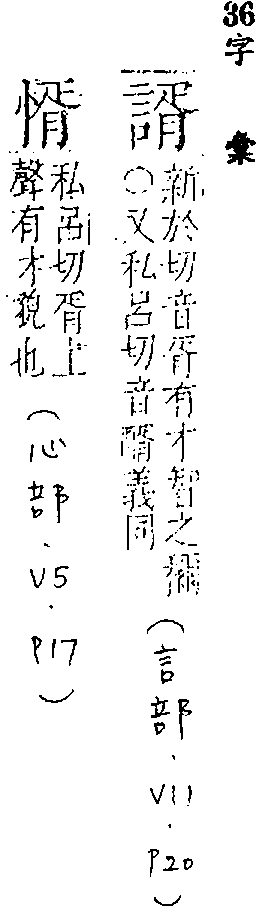 36字彙
諝
新於切音胥有才智之稱
○又私呂切音醑義同
(言部.V11.P20)
㥠
私呂切胥上
聲有才貌也
(心部.V5.P17)